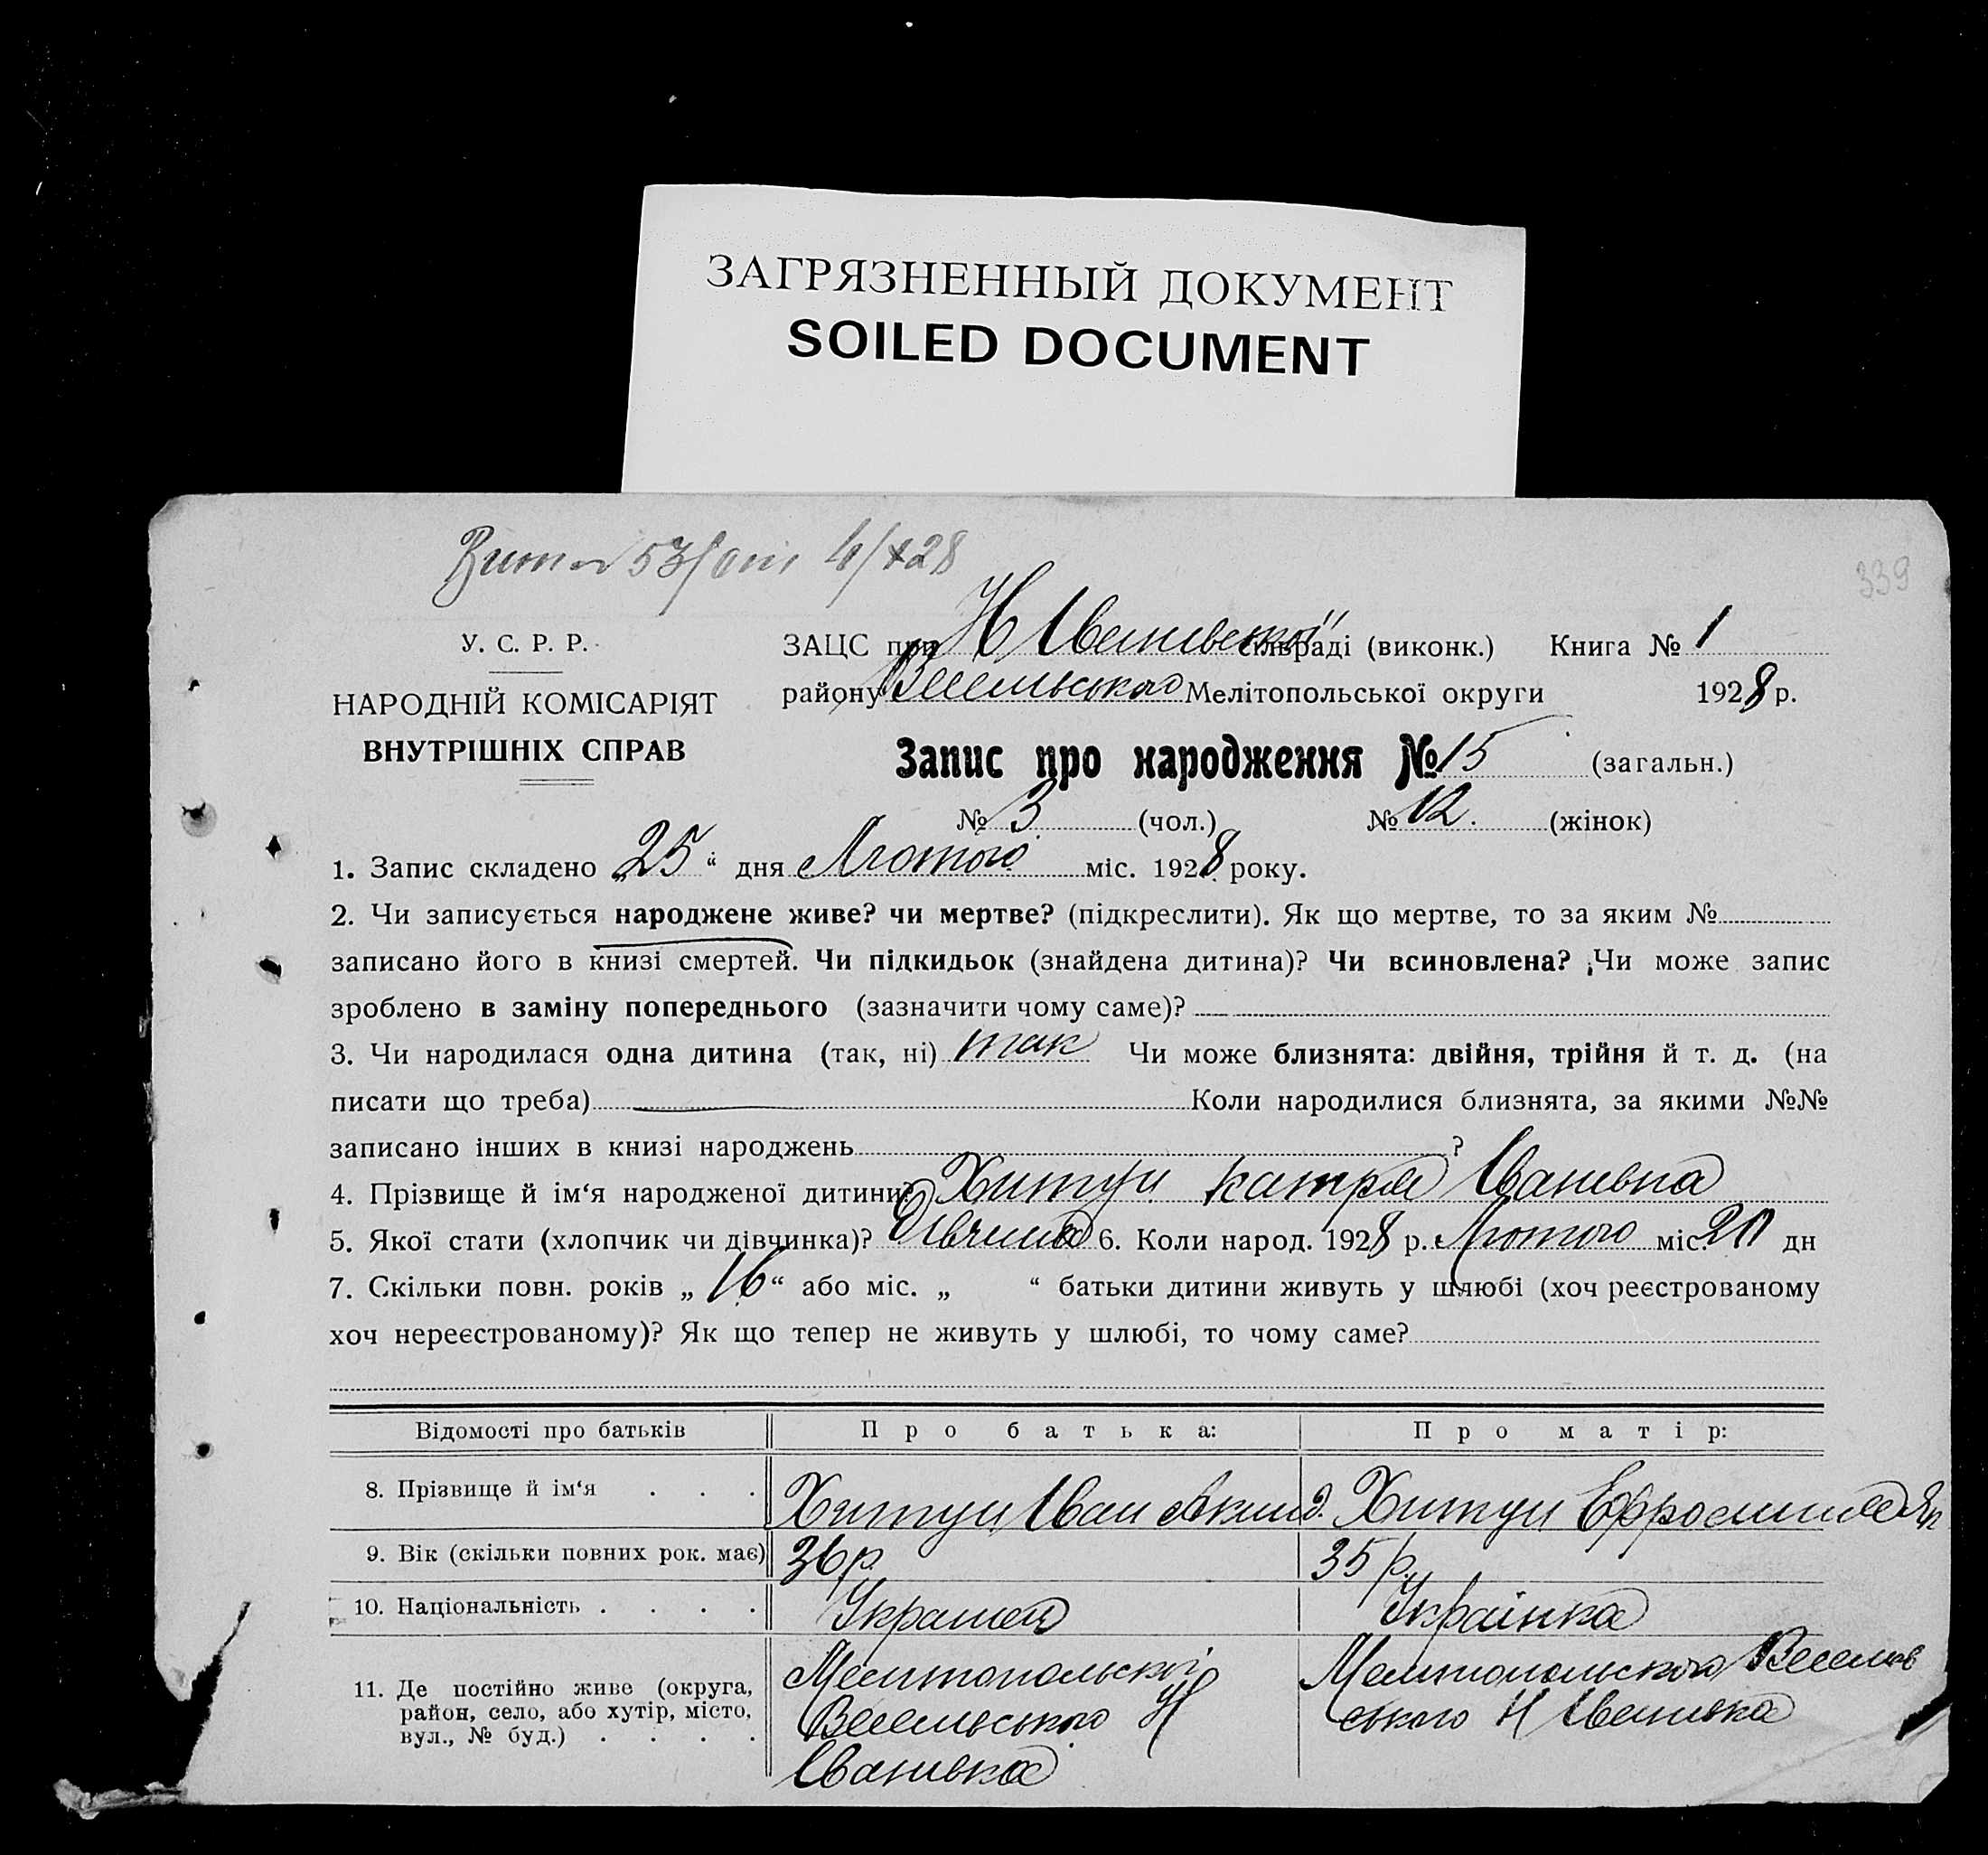 ЗАГРЯЗНЕННЫЙ ДОКУМЕНТ
SOILED DOCUMENT
53 4/X 28
339
У. С. Р. Р.
НАРОДНІЙ КОМІСАРІЯТ
ВНУТРІШНІХ СПРАВ
ЗАЦС при Н Іванівської сільраді (виконк.) Книга № 1
району Весельського Мелітопольської округи 1928 р.
Запис про народження № 15 (загальн.)
№ 3 (чол.) № 12. (жінок)
1. Запис складено „25“ дня Лютого міс. 1928 року.
2. Чи записується народжене живе? чи мертве? (підкреслити). Як що мертве, то за яким №
записано його в книзі смертей. Чи підкидьок (знайдена дитина)? Чи всиновлена? Чи може запис
зроблено в заміну попереднього (зазначити чому саме)?
3. Чи народилася одна дитина (так, ні) так Чи може близнята: двійня, трійня й т. д. (на
писати що треба) Коли народилися близнята, за якими №№
записано інших в книзі народжень ?
4. Прізвище й ім‘я народженої дитини? Хитун Катря Іванівна
5. Якої стати (хлопчик чи дівчинка)? Дівчина 6. Коли народ. 1928 р. Лютого міс. 20 дн
7. Скільки повн. років „16“ або міс. „ “ батьки дитини живуть у шлюбі (хоч реєстрованому
хоч нереєстрованому)? Як що тепер не живуть у шлюбі, то чому саме?
Відомості про батьків Про батька: Про матір:
8. Прізвище й ім‘я . . . Хитун Іван Аким Хитун Ефросиния
9. Вік (скільки повних рок. має) 36 р. 35 р.
10. Національність . . . . Українец Українка
11. Де постійно живе (округа,
район, село, або хутір, місто,
вул., № буд.) . . . .
Мелитопольскої
Весельського Н
Іванивка
Мелитопольского Веселов
ського Н Іванивка